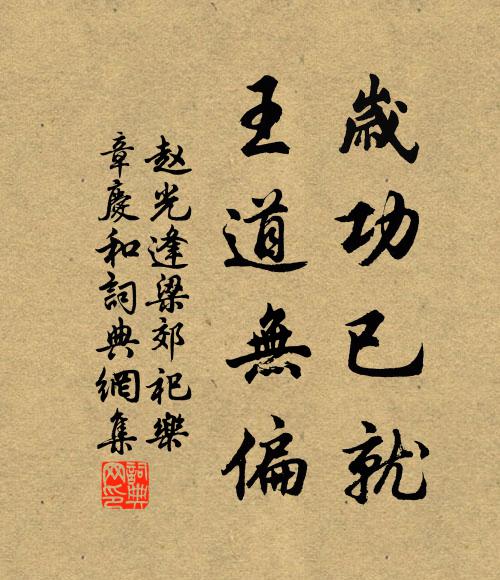 歲功已就
王道無偏
赵光逢梁郊祀樂
章慶和詞典網集
詞典
网印